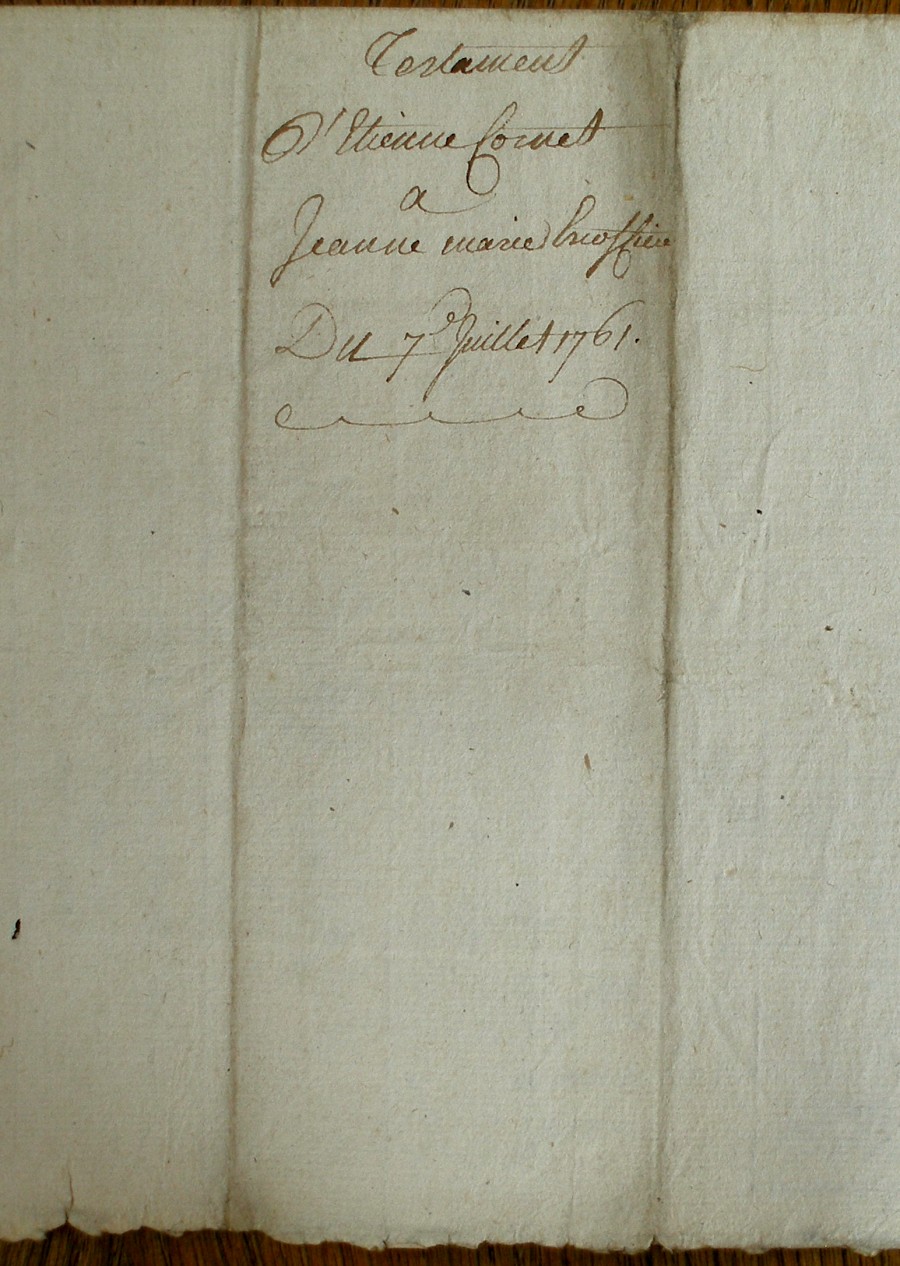 Testament
D'Etienne Cornet
a
Jeanne marie
Du 7e Juillet 1761.